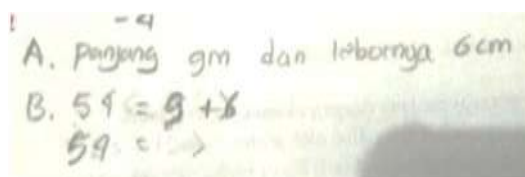 -4
A. Panjang 9m dan lebarnya 6cm
B. 54 = 9 + 6
54 =